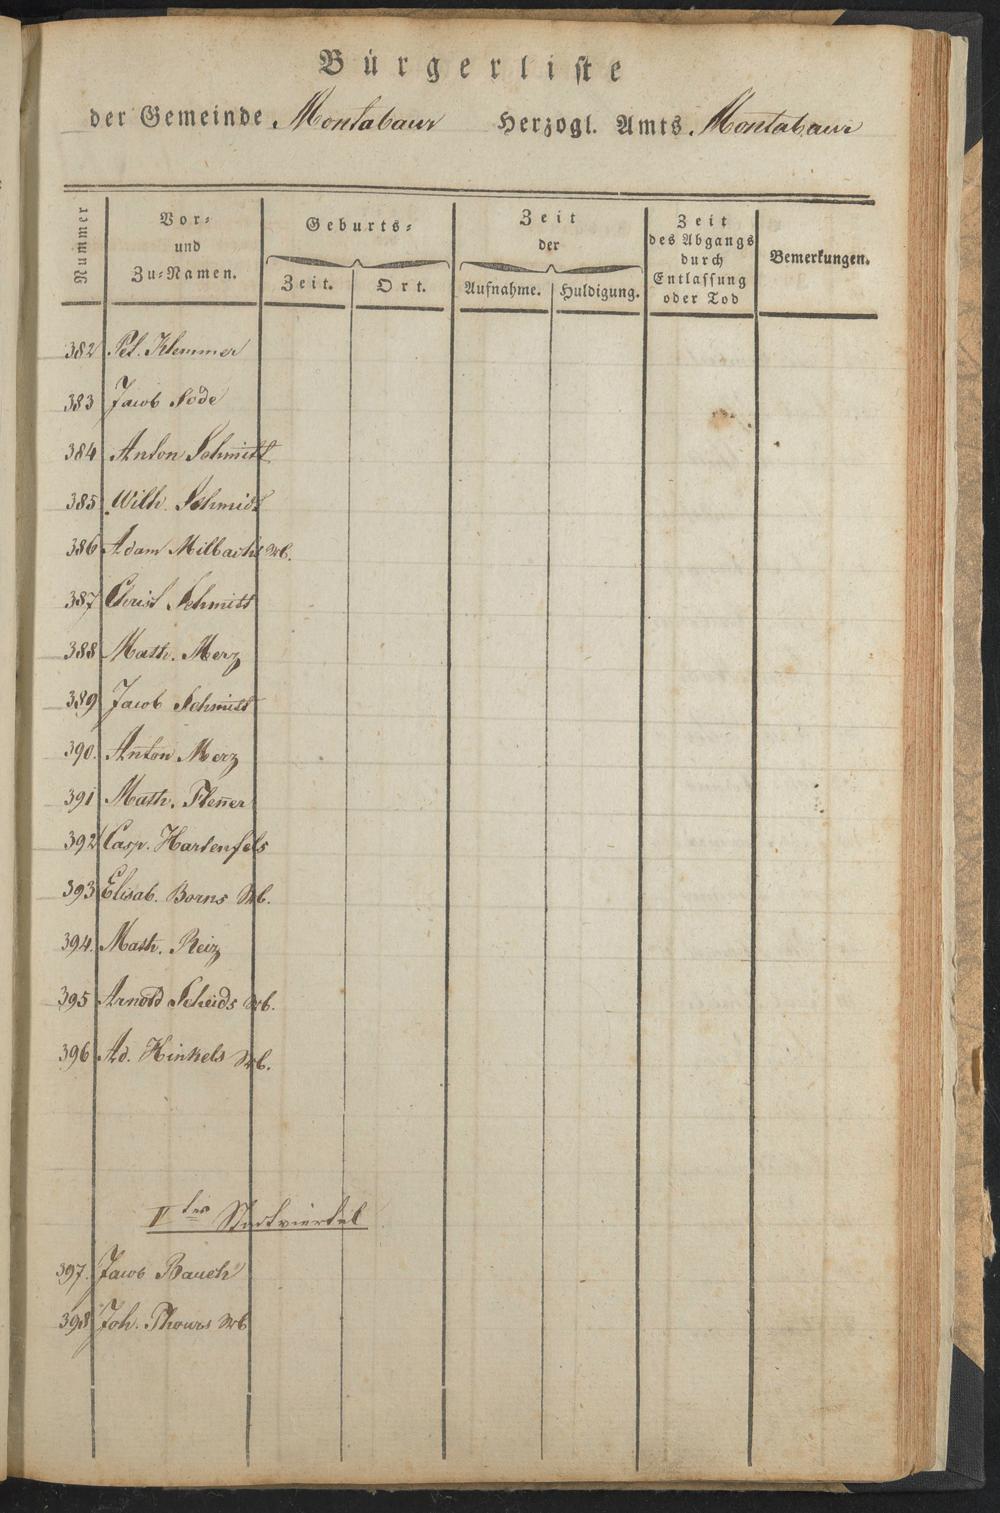 Bürgerliste
der Gemeinde Montabaur Herzogl. Amts Montabaur
Nummer
Vor- und Zu-Namen.
Geburts-
Zeit.
Ort.
Zeit der
Aufnahme.
Huldigung.
Zeit des Abgangs durch Entlassung oder Tod
Bemerkungen.
382 Pet. Klemmer
383 Jacob Sode
384 Anton Schmitt
385 Wilh. Schmidt
386 Adam Milbachs Wb.
387 Christ Schmitt
388 Math. Merz
389 Jacob Schmitt
390. Anton Merz
391 Math. Flen̄er
392 Casp. Hartenfels
393 Elisab. Borns Wb.
394. Math. Reiz
395 Arnold Scheids Wb.
396 Ad. Hinkels Wb.
V tes Stadtviertel
397. Jacob Bauch
398 Joh. Wb